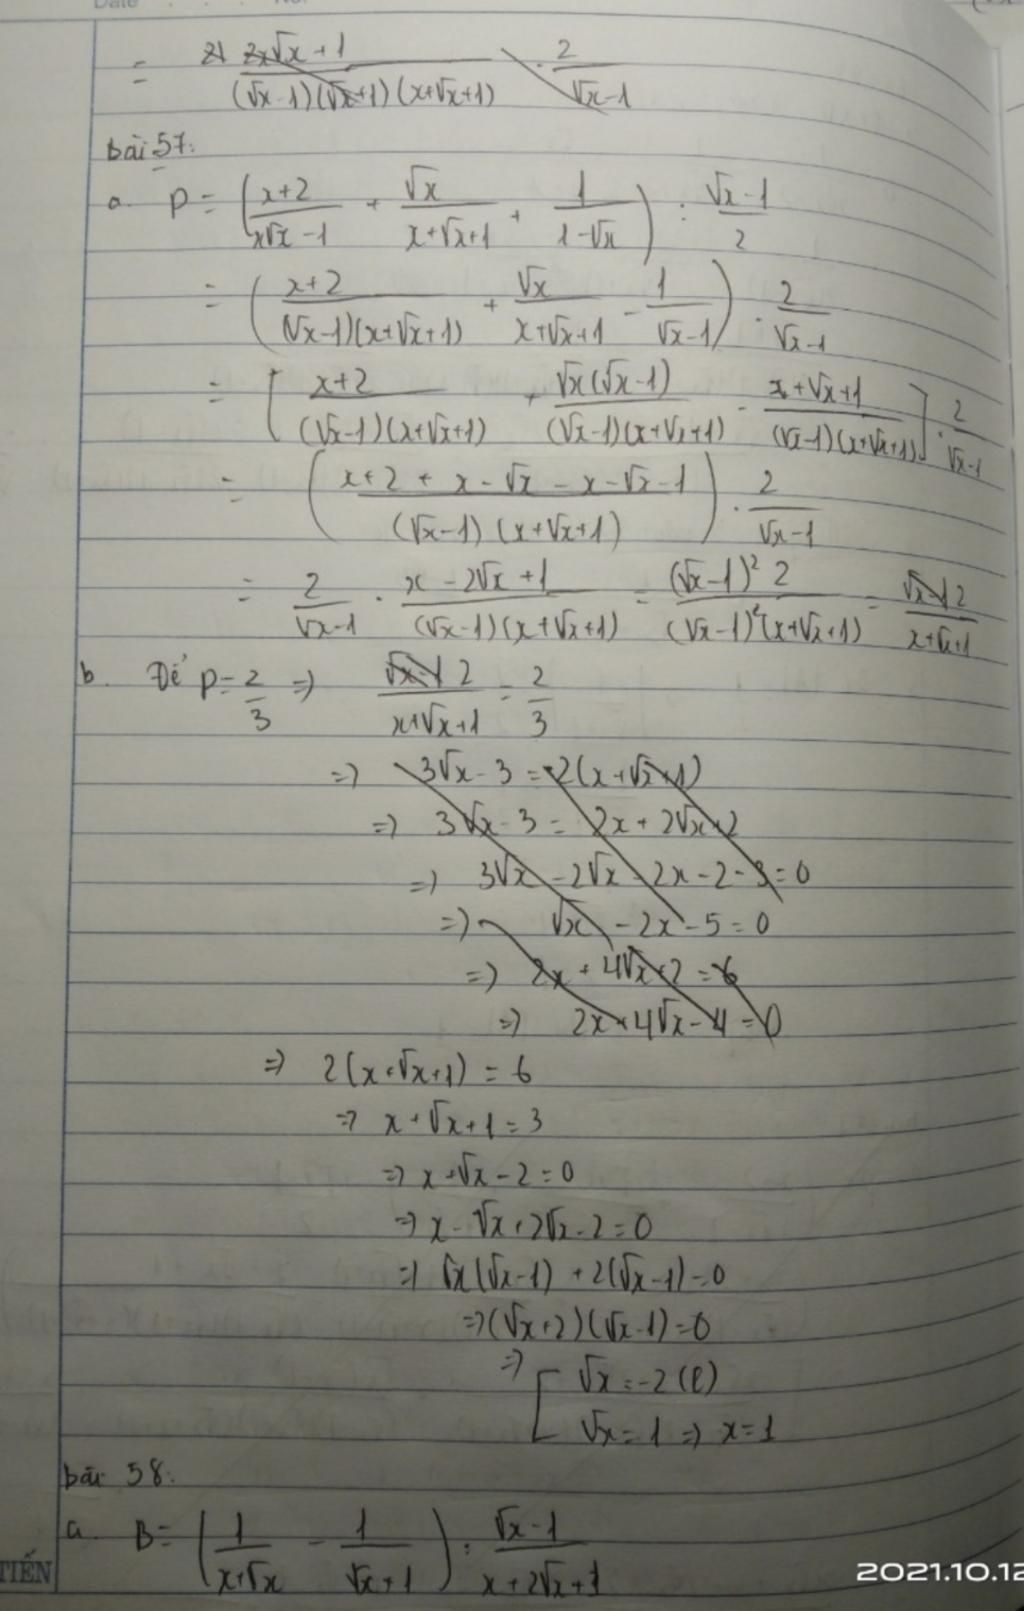 Date No.
= 21 2x√x + 1 / (√x - 1)(√x+1)(x+√x+1) · 2 / √x-1
bài 57:
a. P = (x+2 / x√x - 1 + √x / x+√x+1 + 1 / 1-√x) : √x-1 / 2
= (x+2 / (√x-1)(x+√x+1) + √x / x+√x+1 - 1 / √x-1) · 2 / √x-1
= [x+2 / (√x-1)(x+√x+1) + √x(√x-1) / (√x-1)(x+√x+1) - x+√x+1 / (√x-1)(x+√x+1)] · 2 / √x-1
= (x+2 + x - √x - x - √x - 1 / (√x-1)(x+√x+1)) · 2 / √x-1
= 2 / √x-1 · x - 2√x + 1 / (√x-1)(x+√x+1) = (√x-1)² 2 / (√x-1)²(x+√x+1) = √x-1 2 / x+√x+1
b. Để P = 2/3 => √x-1 2 / x+√x+1 = 2/3
=> 3√x - 3 = 2(x+√x+1)
=> 3√x - 3 = 2x + 2√x+2
=> 3√x - 2√x - 2x - 2 - 3 = 0
=> √x - 2x - 5 = 0
=> 2x + 4√x + 2 = 6
=> 2x + 4√x - 4 = 0
=> 2(x+√x+1) = 6
=> x + √x + 1 = 3
=> x + √x - 2 = 0
=> x - √x + 2√x - 2 = 0
=> √x(√x-1) + 2(√x-1) = 0
=> (√x+2)(√x-1) = 0
=> [ √x = -2 (l)
√x = 1 => x = 1
bài 58:
a. B = (1 / x+√x - 1 / √x+1) : √x-1 / x+2√x+1
TIẾN
2021.10.12